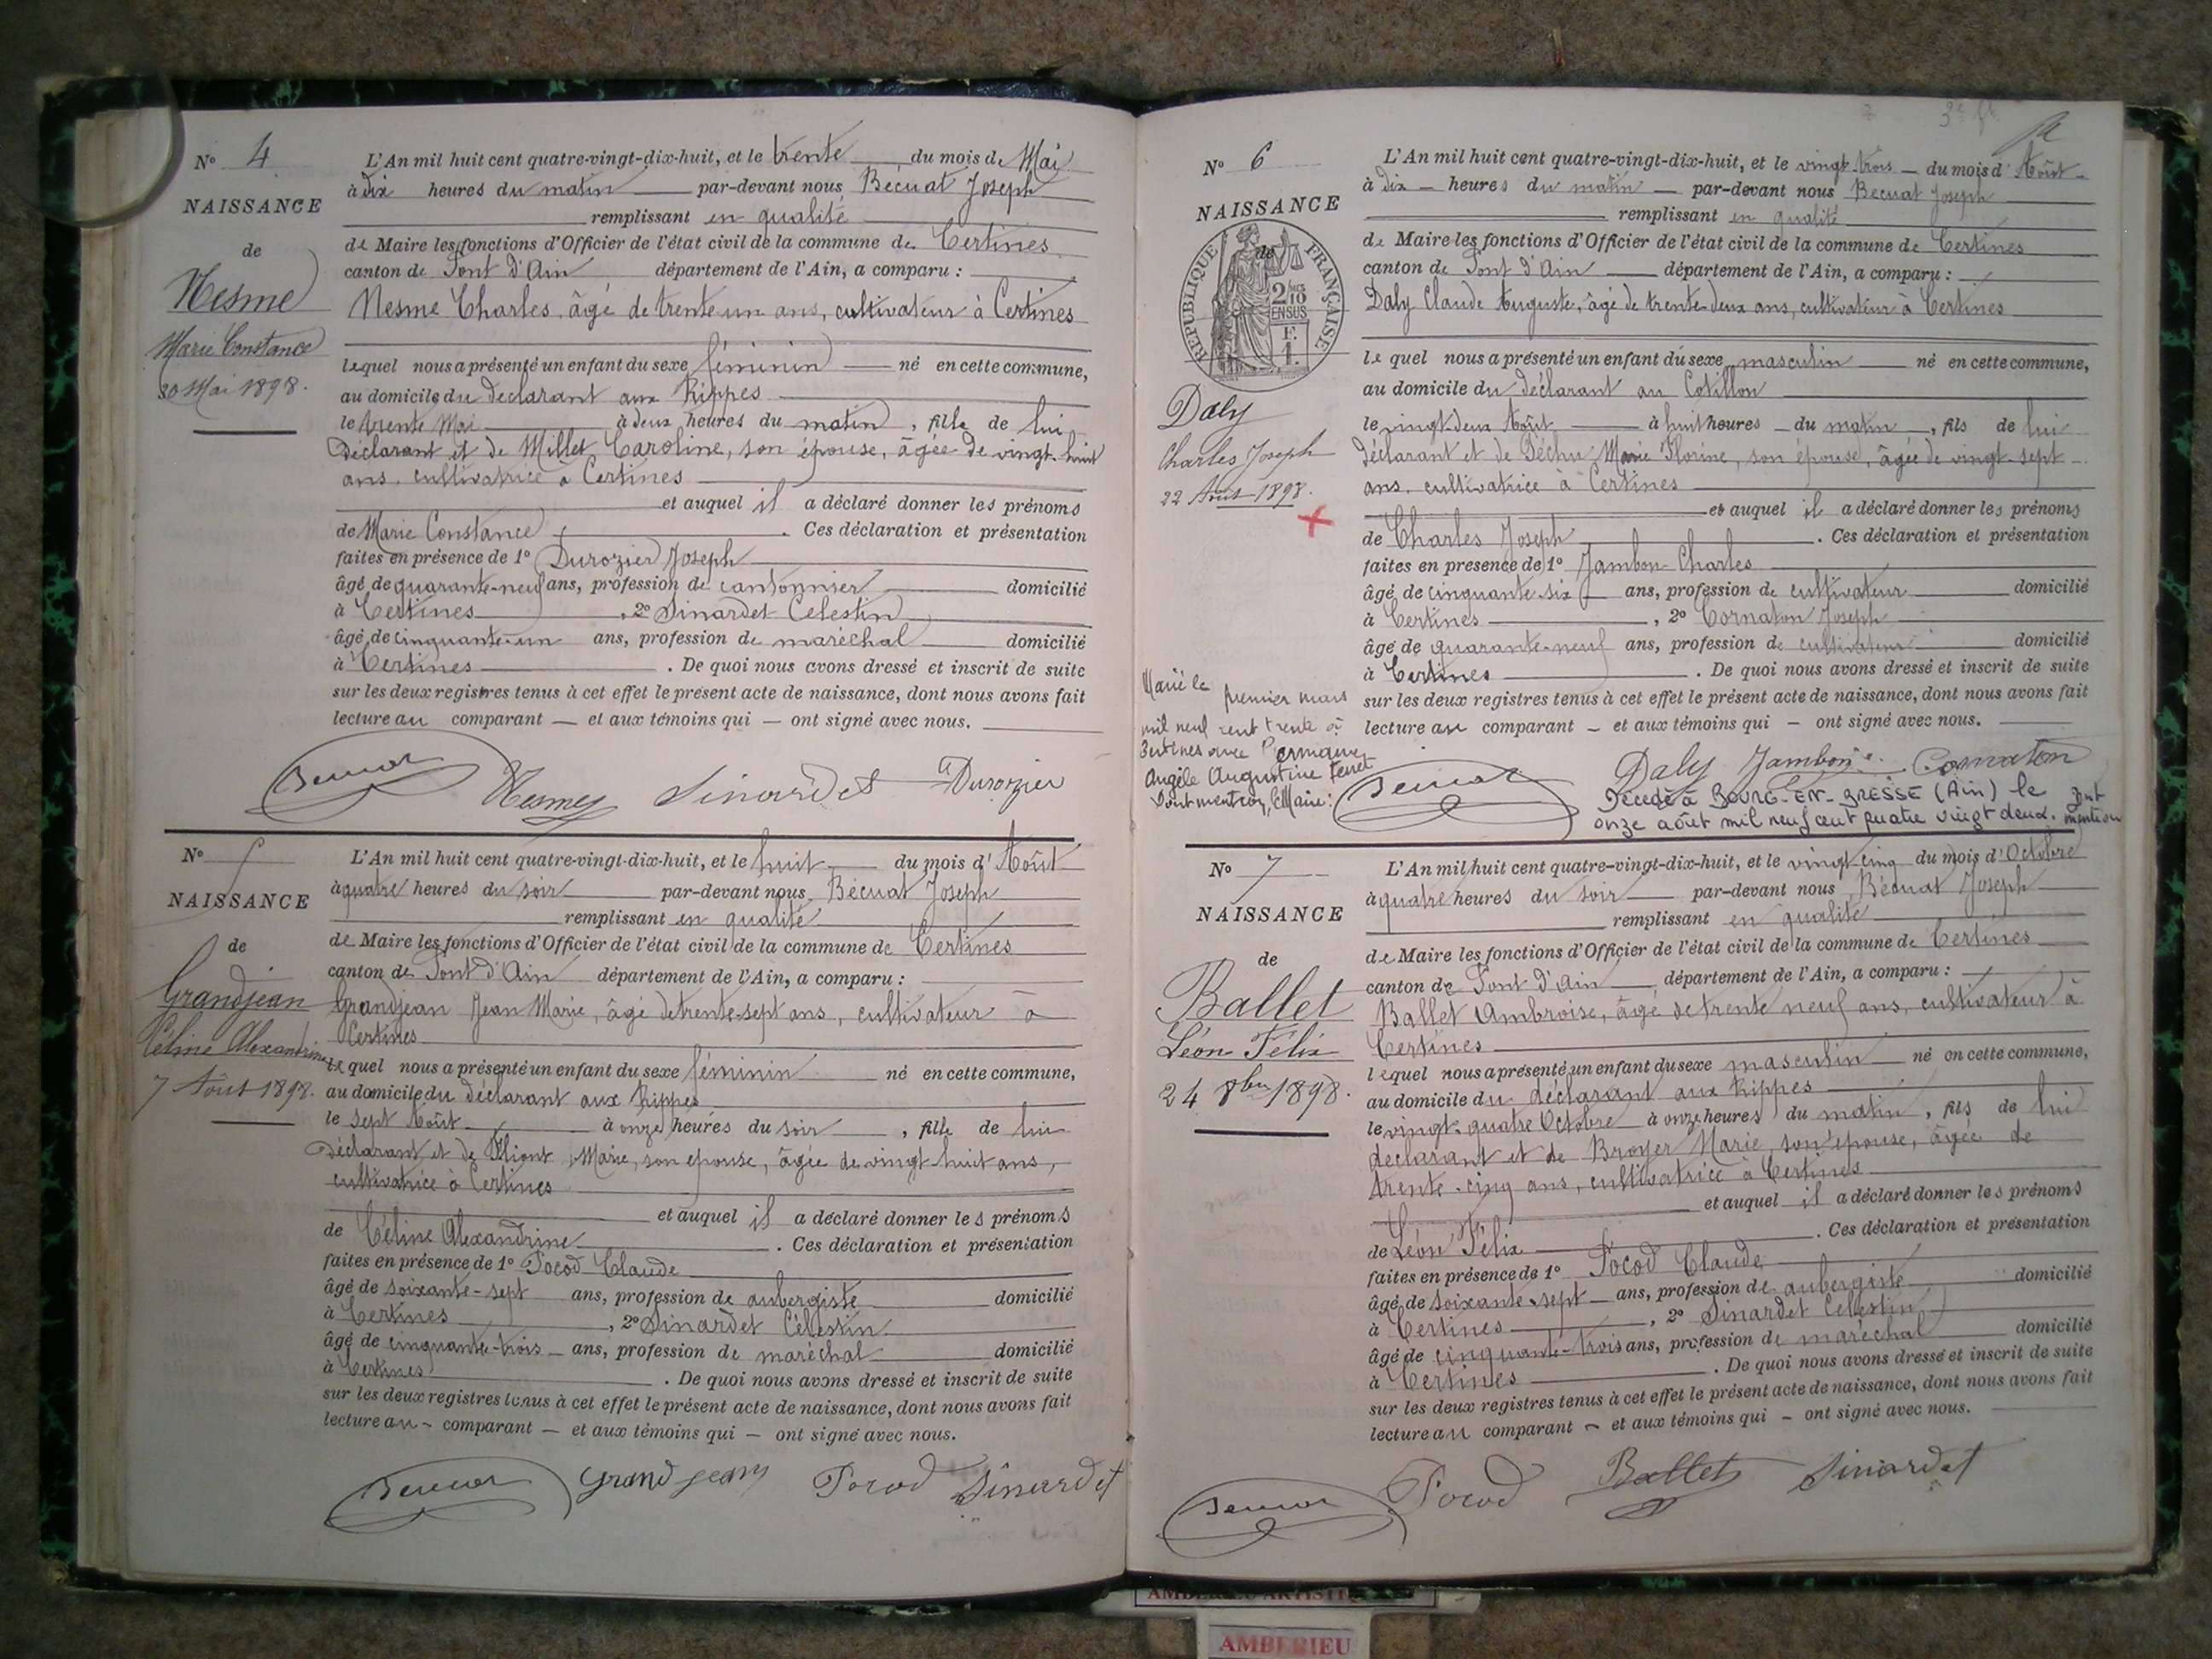 N° 4
NAISSANCE
de
Nesme
Marie Constance
30 Mai 1898.
L'An mil huit cent quatre-vingt-dix-huit, et le trente du mois de Mai
à dix heures du matin par-devant nous Bécuat Joseph
remplissant en qualité
de Maire les fonctions d'Officier de l'état civil de la commune de Certines
canton de Pont d'Ain département de l'Ain, a comparu :
Nesme Charles, âgé de trente un ans, cultivateur à Certines
lequel nous a présenté un enfant du sexe féminin né en cette commune,
au domicile du déclarant aux Rippes
le trente Mai à deux heures du matin, fille de lui
déclarant et de Millet Caroline, son épouse, âgée de vingt-huit
ans, cultivatrice à Certines
et auquel il a déclaré donner les prénoms
de Marie Constance. Ces déclaration et présentation
faites en présence de 1° Durozier Joseph
âgé de quarante-neuf ans, profession de cantonnier domicilié
à Certines, 2° Sinardet Célestin
âgé de cinquante-un ans, profession de maréchal domicilié
à Certines. De quoi nous avons dressé et inscrit de suite
sur les deux registres tenus à cet effet le présent acte de naissance, dont nous avons fait
lecture au comparant — et aux témoins qui — ont signé avec nous.
Bécuat Nesme Sinardet Durozier
N° 5
NAISSANCE
de
Grandjean
Céline Alexandrine
7 Août 1898.
L'An mil huit cent quatre-vingt-dix-huit, et le huit du mois d'Août
à quatre heures du soir par-devant nous Bécuat Joseph
remplissant en qualité
de Maire les fonctions d'Officier de l'état civil de la commune de Certines
canton de Pont d'Ain département de l'Ain, a comparu :
Grandjean Jean Marie, âgé de trente-sept ans, cultivateur à
Certines
lequel nous a présenté un enfant du sexe féminin né en cette commune,
au domicile du déclarant aux Rippes
le sept Août à onze heures du soir, fille de lui
déclarant et de Marie, son épouse, âgée de vingt huit ans,
cultivatrice à Certines
et auquel il a déclaré donner les prénoms
de Céline Alexandrine. Ces déclaration et présentation
faites en présence de 1° Pocod Claude
âgé de soixante-sept ans, profession de aubergiste domicilié
à Certines, 2° Sinardet Célestin
âgé de cinquante-trois ans, profession de maréchal domicilié
à Certines. De quoi nous avons dressé et inscrit de suite
sur les deux registres tenus à cet effet le présent acte de naissance, dont nous avons fait
lecture au - comparant — et aux témoins qui — ont signé avec nous.
Bécuat Grandjean Pocod Sinardet
N° 6
NAISSANCE
de
RÉPUBLIQUE FRANÇAISE
2/10
EN SUS
F.
1.
Daly
Charles Joseph
22 Août 1898.
L'An mil huit cent quatre-vingt-dix-huit, et le vingt-trois du mois d'Août
à dix heures du matin par-devant nous Bécuat Joseph
remplissant en qualité
de Maire les fonctions d'Officier de l'état civil de la commune de Certines
canton de Pont d'Ain département de l'Ain, a comparu :
Daly Claude Auguste, âgé de trente-deux ans, cultivateur à Certines
lequel nous a présenté un enfant du sexe masculin né en cette commune,
au domicile du déclarant au Cotillon
le vingt-deux Août à huit heures du matin, fils de lui
déclarant et de Marie Florine, son épouse, âgée de vingt-sept
ans, cultivatrice à Certines
et auquel il a déclaré donner les prénoms
de Charles Joseph. Ces déclaration et présentation
faites en présence de 1° Jambon Charles
âgé de cinquante-six ans, profession de cultivateur domicilié
à Certines, 2° Cornaton Joseph
âgé de quarante-neuf ans, profession de cultivateur domicilié
à Certines. De quoi nous avons dressé et inscrit de suite
sur les deux registres tenus à cet effet le présent acte de naissance, dont nous avons fait
lecture au comparant — et aux témoins qui — ont signé avec nous.
Marié le
premier mars
mil neuf cent trente à
Certines avec
Angèle Augustine
Dont mention, le Maire :
Bécuat Daly Jambon Cornaton
Décédé à BOURG-EN-BRESSE (Ain) le
onze août mil neuf cent quatre vingt deux. Dont mention
N° 7
NAISSANCE
de
Ballet
Léon Félix
24 8bre 1898.
L'An mil huit cent quatre-vingt-dix-huit, et le vingt-cinq du mois d'Octobre
à quatre heures du soir par-devant nous Bécuat Joseph
remplissant en qualité
de Maire les fonctions d'Officier de l'état civil de la commune de Certines
canton de Pont d'Ain département de l'Ain, a comparu :
Ballet Ambroise, âgé de trente neuf ans, cultivateur à
Certines
lequel nous a présenté un enfant du sexe masculin né en cette commune,
au domicile du déclarant aux Rippes
le vingt-quatre Octobre à onze heures du matin, fils de lui
déclarant et de Broyer Marie, son épouse, âgée de
trente-cinq ans, cultivatrice à Certines
et auquel il a déclaré donner les prénoms
de Léon Félix. Ces déclaration et présentation
faites en présence de 1° Pocod Claude
âgé de soixante-sept ans, profession de aubergiste domicilié
à Certines, 2° Sinardet Célestin
âgé de cinquante-trois ans, profession de maréchal domicilié
à Certines. De quoi nous avons dressé et inscrit de suite
sur les deux registres tenus à cet effet le présent acte de naissance, dont nous avons fait
lecture au comparant — et aux témoins qui — ont signé avec nous.
Bécuat Pocod Ballet Sinardet
AMBERIEU